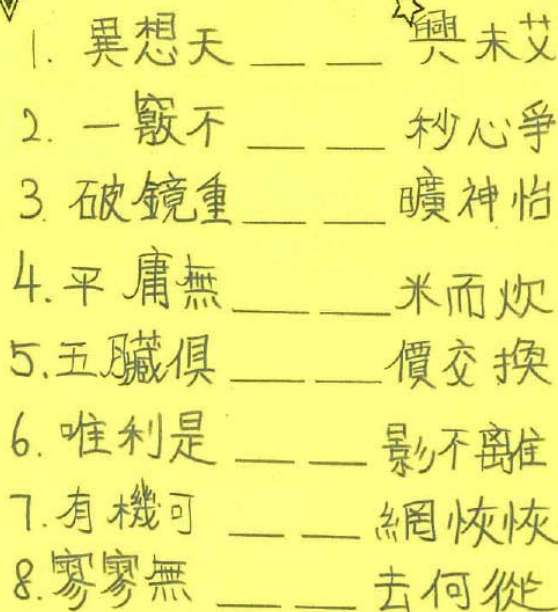 1. 異想天＿ ＿興未艾
2. 一竅不＿ ＿秒心爭
3. 破鏡重＿ ＿曠神怡
4. 平庸無＿ ＿米而炊
5. 五臟俱＿ ＿價交換
6. 唯利是＿ ＿影不離
7. 有機可＿ ＿網恢恢
8. 寥寥無＿ ＿去何從